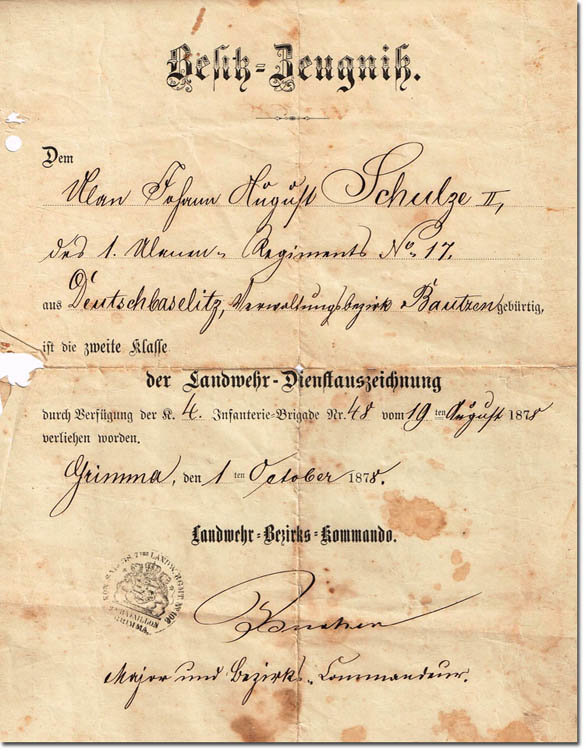 Besitz-Zeugniß.
Dem
Ulan Johann August Schulze II,
des 1. Ulanen-Regiments No. 17.
aus Deutschbaselitz, Verwaltungsbezirk Bautzen gebürtig,
ist die zweite Klasse
der Landwehr-Dienstauszeichnung
durch Verfügung der K. 4. Infanterie-Brigade Nr. 48 vom 19 ten August 1878
verliehen worden.
Grimma, den 1 ten October 1878.
Landwehr-Bezirks-Kommando.
LANDW. RGMT. No 106
BATAILLON
GRIMMA.
Major und Bezirks-Commandeur.